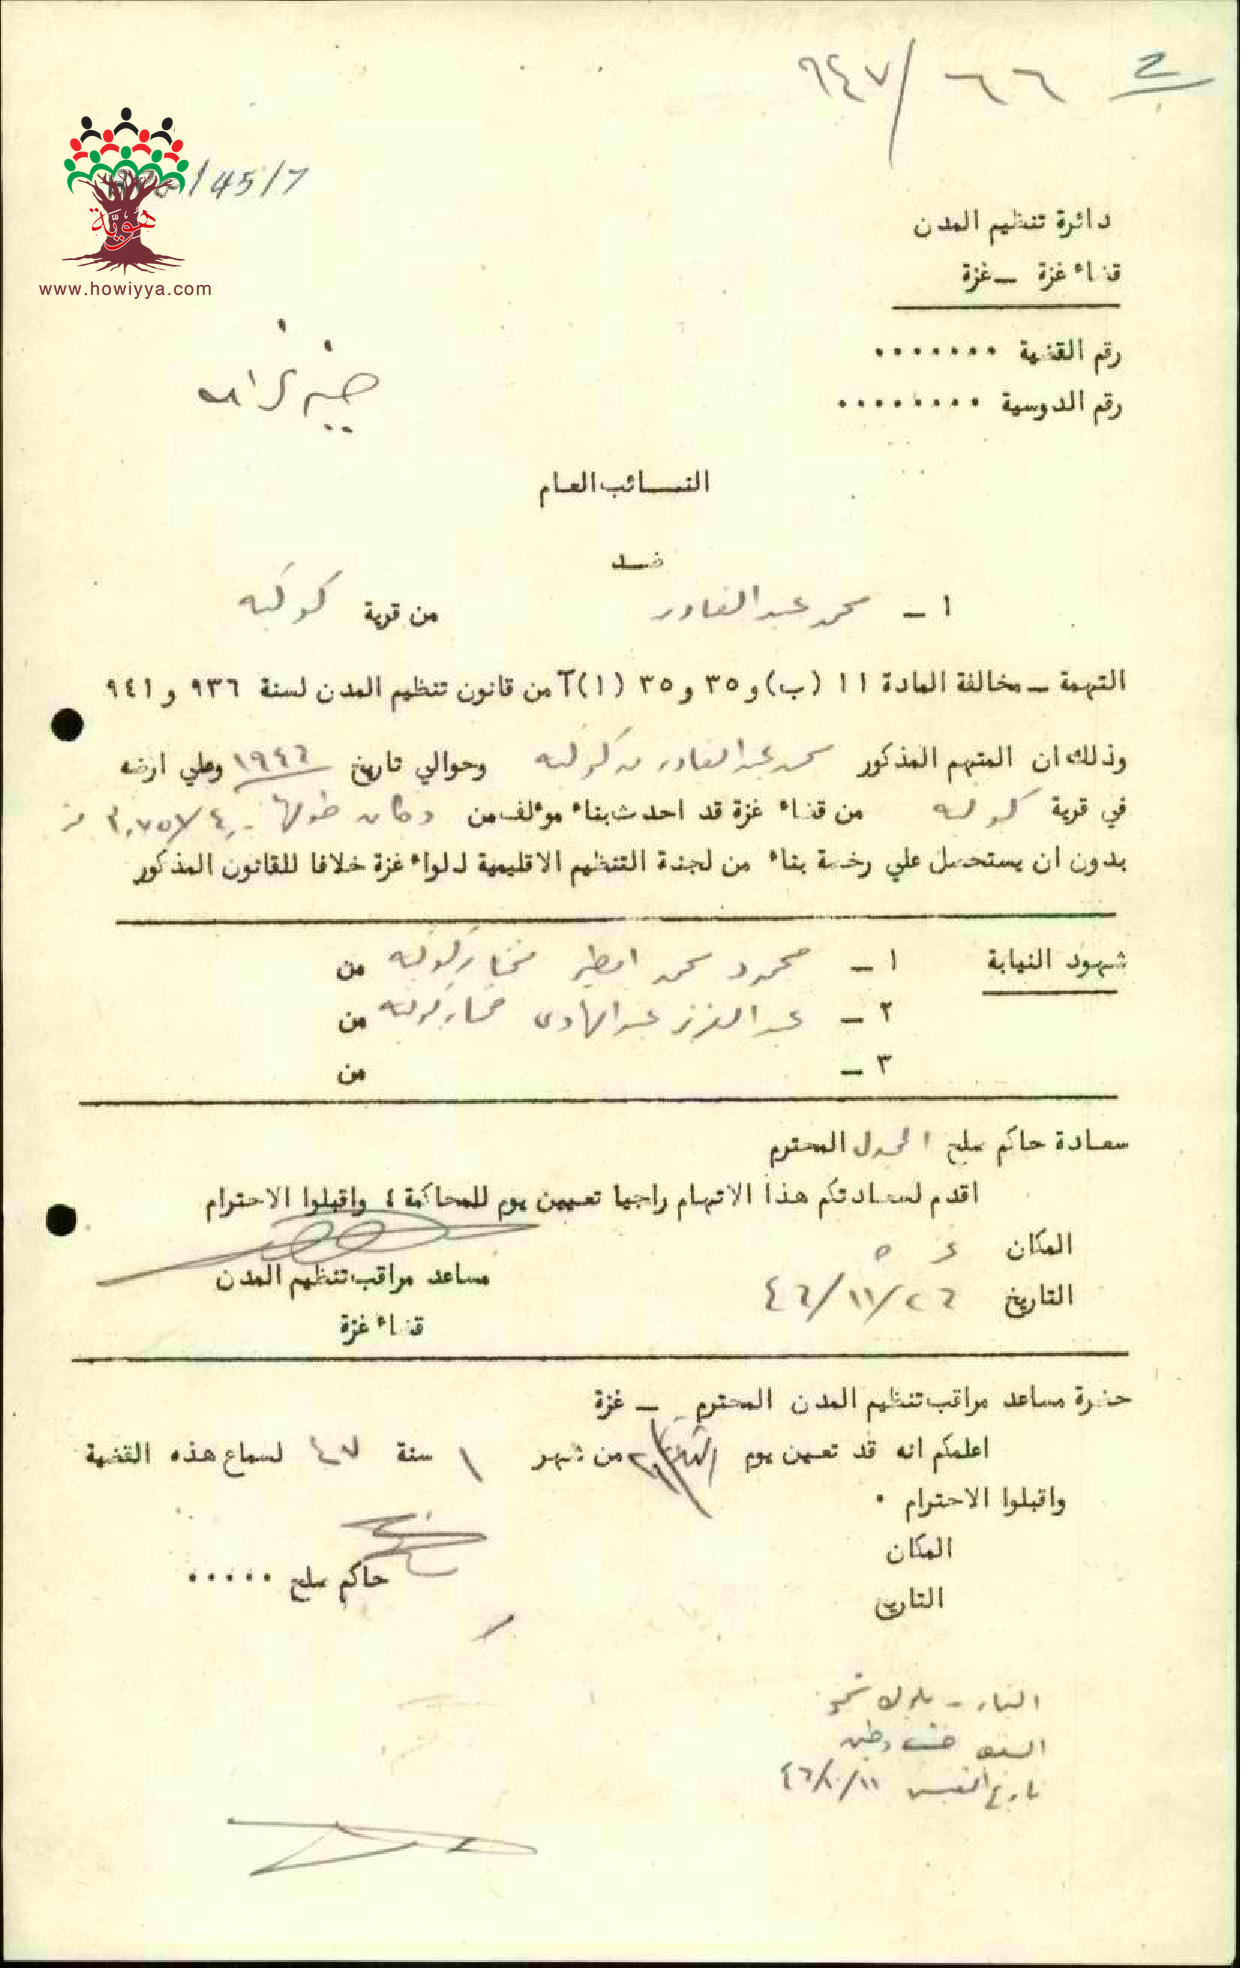 ٩٤٧/ ٦٦
/45/7
هوية
www.howiyya.com
دائرة تنظيم المدن
قضاء غزة ــ غزة
رقم القضية ٠٠٠٠٠٠٠
رقم الدوسية ٠٠٠٠٠٠٠٠
النائب العام
ضد
١ ــ محمد عبد القادر من قرية كوكبه
التهمة ــ مخالفة المادة ١١ (ب) و ٣٥ و ٣٥ (١) آ من قانون تنظيم المدن لسنة ٩٣٦ و ٩٤١
وذلك ان المتهم المذكور محمد عبد القادر من كوكبه وحوالي تاريخ ١٩٤٦ وعلي ارضه
في قرية كوكبه من قضاء غزة قد احدث بناء موءلف من دكان طولها
بدون ان يستحصل علي رخصة بناء من لجنة التنظيم الاقليمية للواء غزة خلافا للقانون المذكور
شهود النيابة ١ ــ محمود محمد مختار كوكبه من
٢ ــ عبد العزيز عبد الهادي مختار كوكبه من
٣ ــ من
سعادة حاكم صلح المجدل المحترم
اقدم لسعادتكم هذا الاتهام راجيا تعيين يوم للمحاكمة ٤ واقبلوا الاحترام
المكان غزه
التاريخ ٢٦/١١/٤٦
مساعد مراقب تنظيم المدن
قضاء غزة
حضرة مساعد مراقب تنظيم المدن المحترم ــ غزة
اعلمكم انه قد تعيين يوم من شهر ١ سنة ٤٧ لسماع هذه القضية
واقبلوا الاحترام ٠
المكان
حاكم صلح ٠٠٠٠٠
التاريخ
البناء ــ
السقف خشب وطين
تاريخ ١١/١٠/٤٦